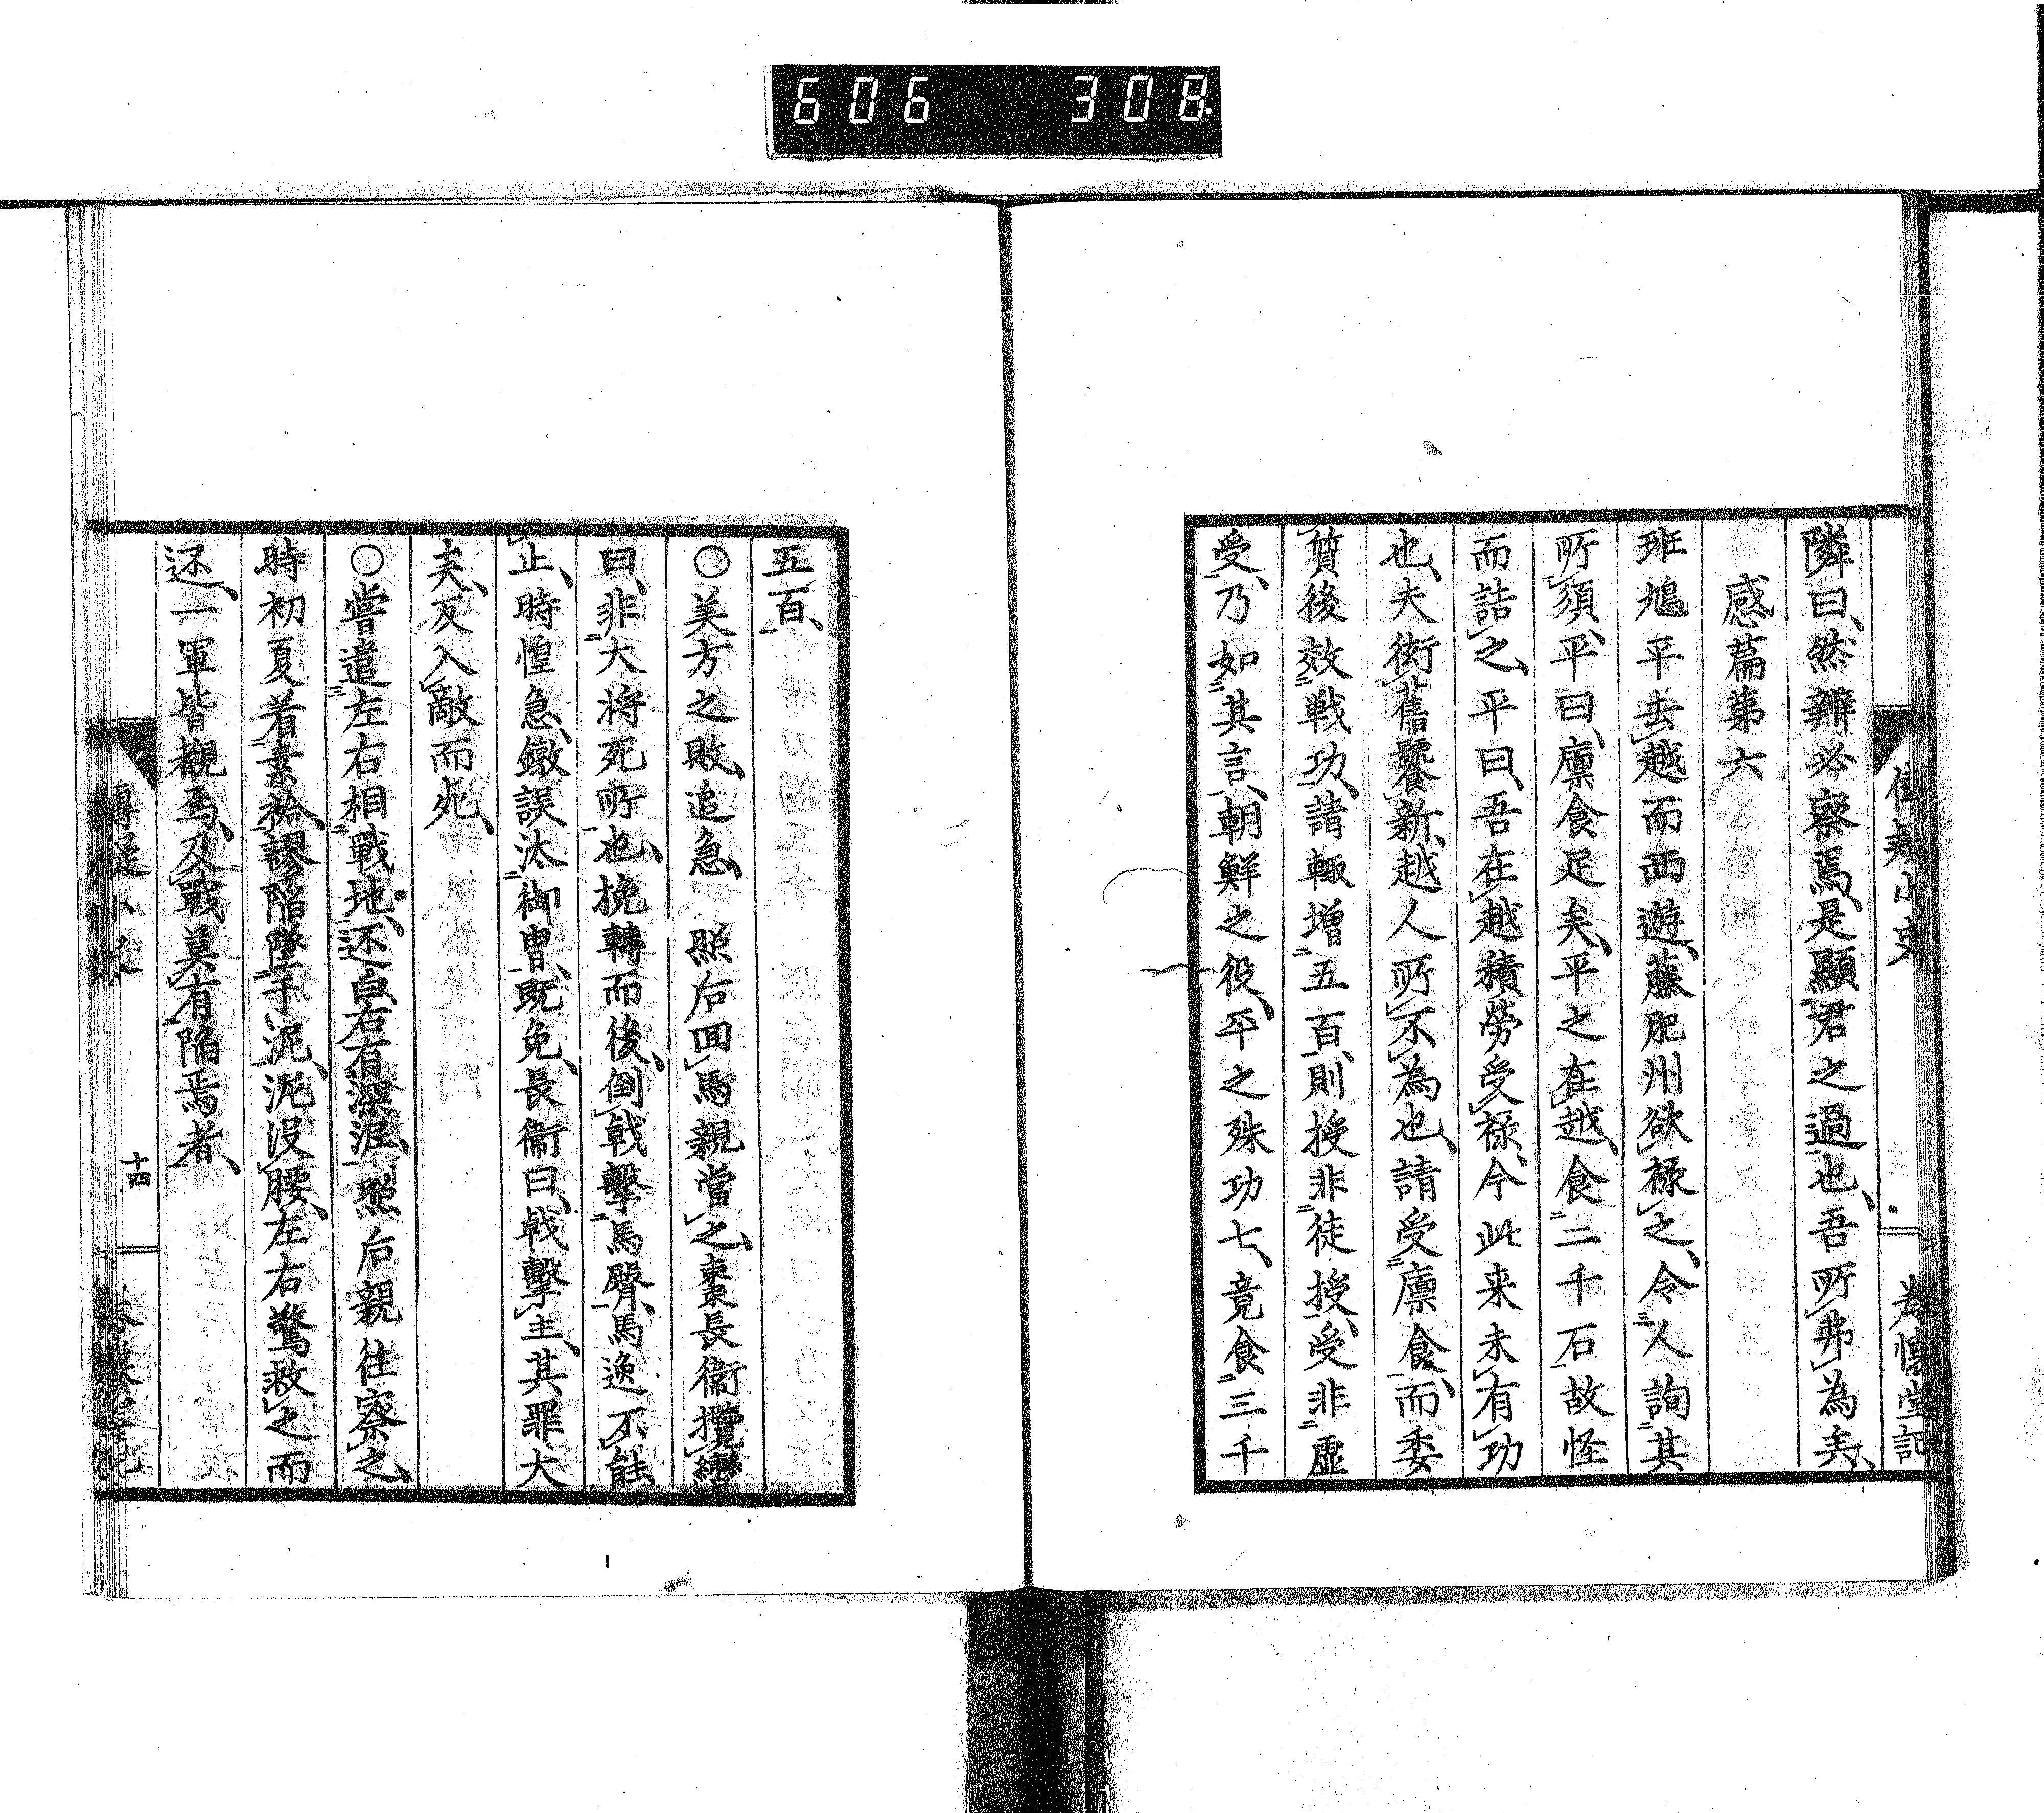 606 308
隣曰、然辨必察焉、是顯君之過也、吾所弗為矣、
感篇第六
班鳩平去越而西遊、藤肥州欲祿之、令人詢其
所須、平曰、廪食足矣、平之在越、食二千石故怪
而詰之、平曰、吾在越積勞受祿、今此来未有功
也、夫衒舊饕新、越人所不為也、請受廪食、而委
質後效戦功、請輙增五百、則授非徒授、受非虛
受、乃如其言、朝鮮之役、平之殊功七、竟食三千
五百、
○美方之敗、追急、照后回馬親當之、棗長衞攬轡
曰、非大将死所也、挽轉而後、倒戟擊馬臀、馬逸不能
止、時惶急、鐓誤汰御冑、既免、長衞曰、戟擊主、其罪大
矣、反入敵而死、
○嘗遣左右相戰地、还白、右有深泥、照后親往察之、
時初夏着素袷、謬陷墜于泥、泥没腰、左右驚救之而
还、一軍皆觀焉、及戰莫有陷焉者、
十四